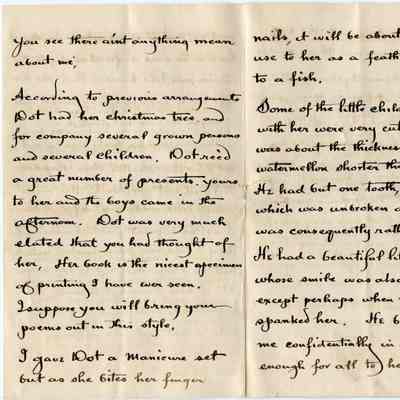 you see there aint anything mean
about me,
According to previous arrangements
Dot had her christmas tree, and
for company several grown persons
and several children. Dot rec'd
a great number of presents. yours
to her and the boys came in the
afternoon. Dot was very much
elated that you had thought of
her, Her book is the nicest specimen
of printing I have ever seen.
I suppose you will bring your
poems out in this style,
I gave Dot a manicure set
but as she bites her finger
nails, it will be about
use to her as a feath
to a fish.
Some of the little child
with her were very cut
was about the thickness
watermellon shorter tha
He had but one tooth,
which was unbroken a
was consequently rath
He had a beautiful lit
whose smile was also
except perhaps when
spanked her. He b
me confidentially in
enough for all to he